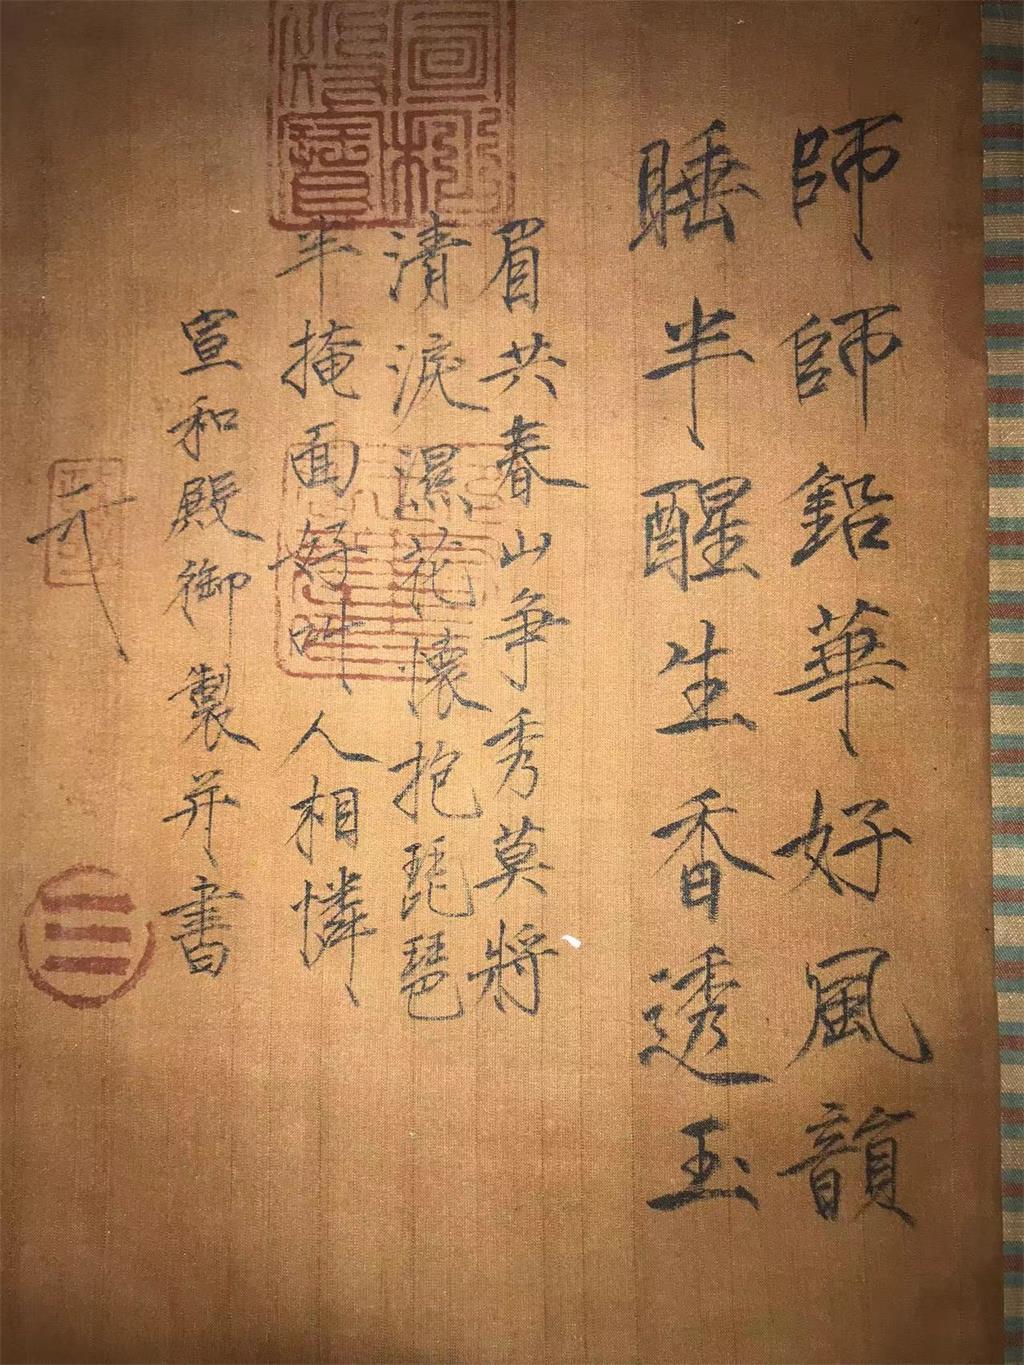 師師鉛華好風韻
睡半醒生香透玉
眉共春山争秀莫將
清淚濕花懐抱琵琶
半掩面好叫人相憐
宣和殿御製并書